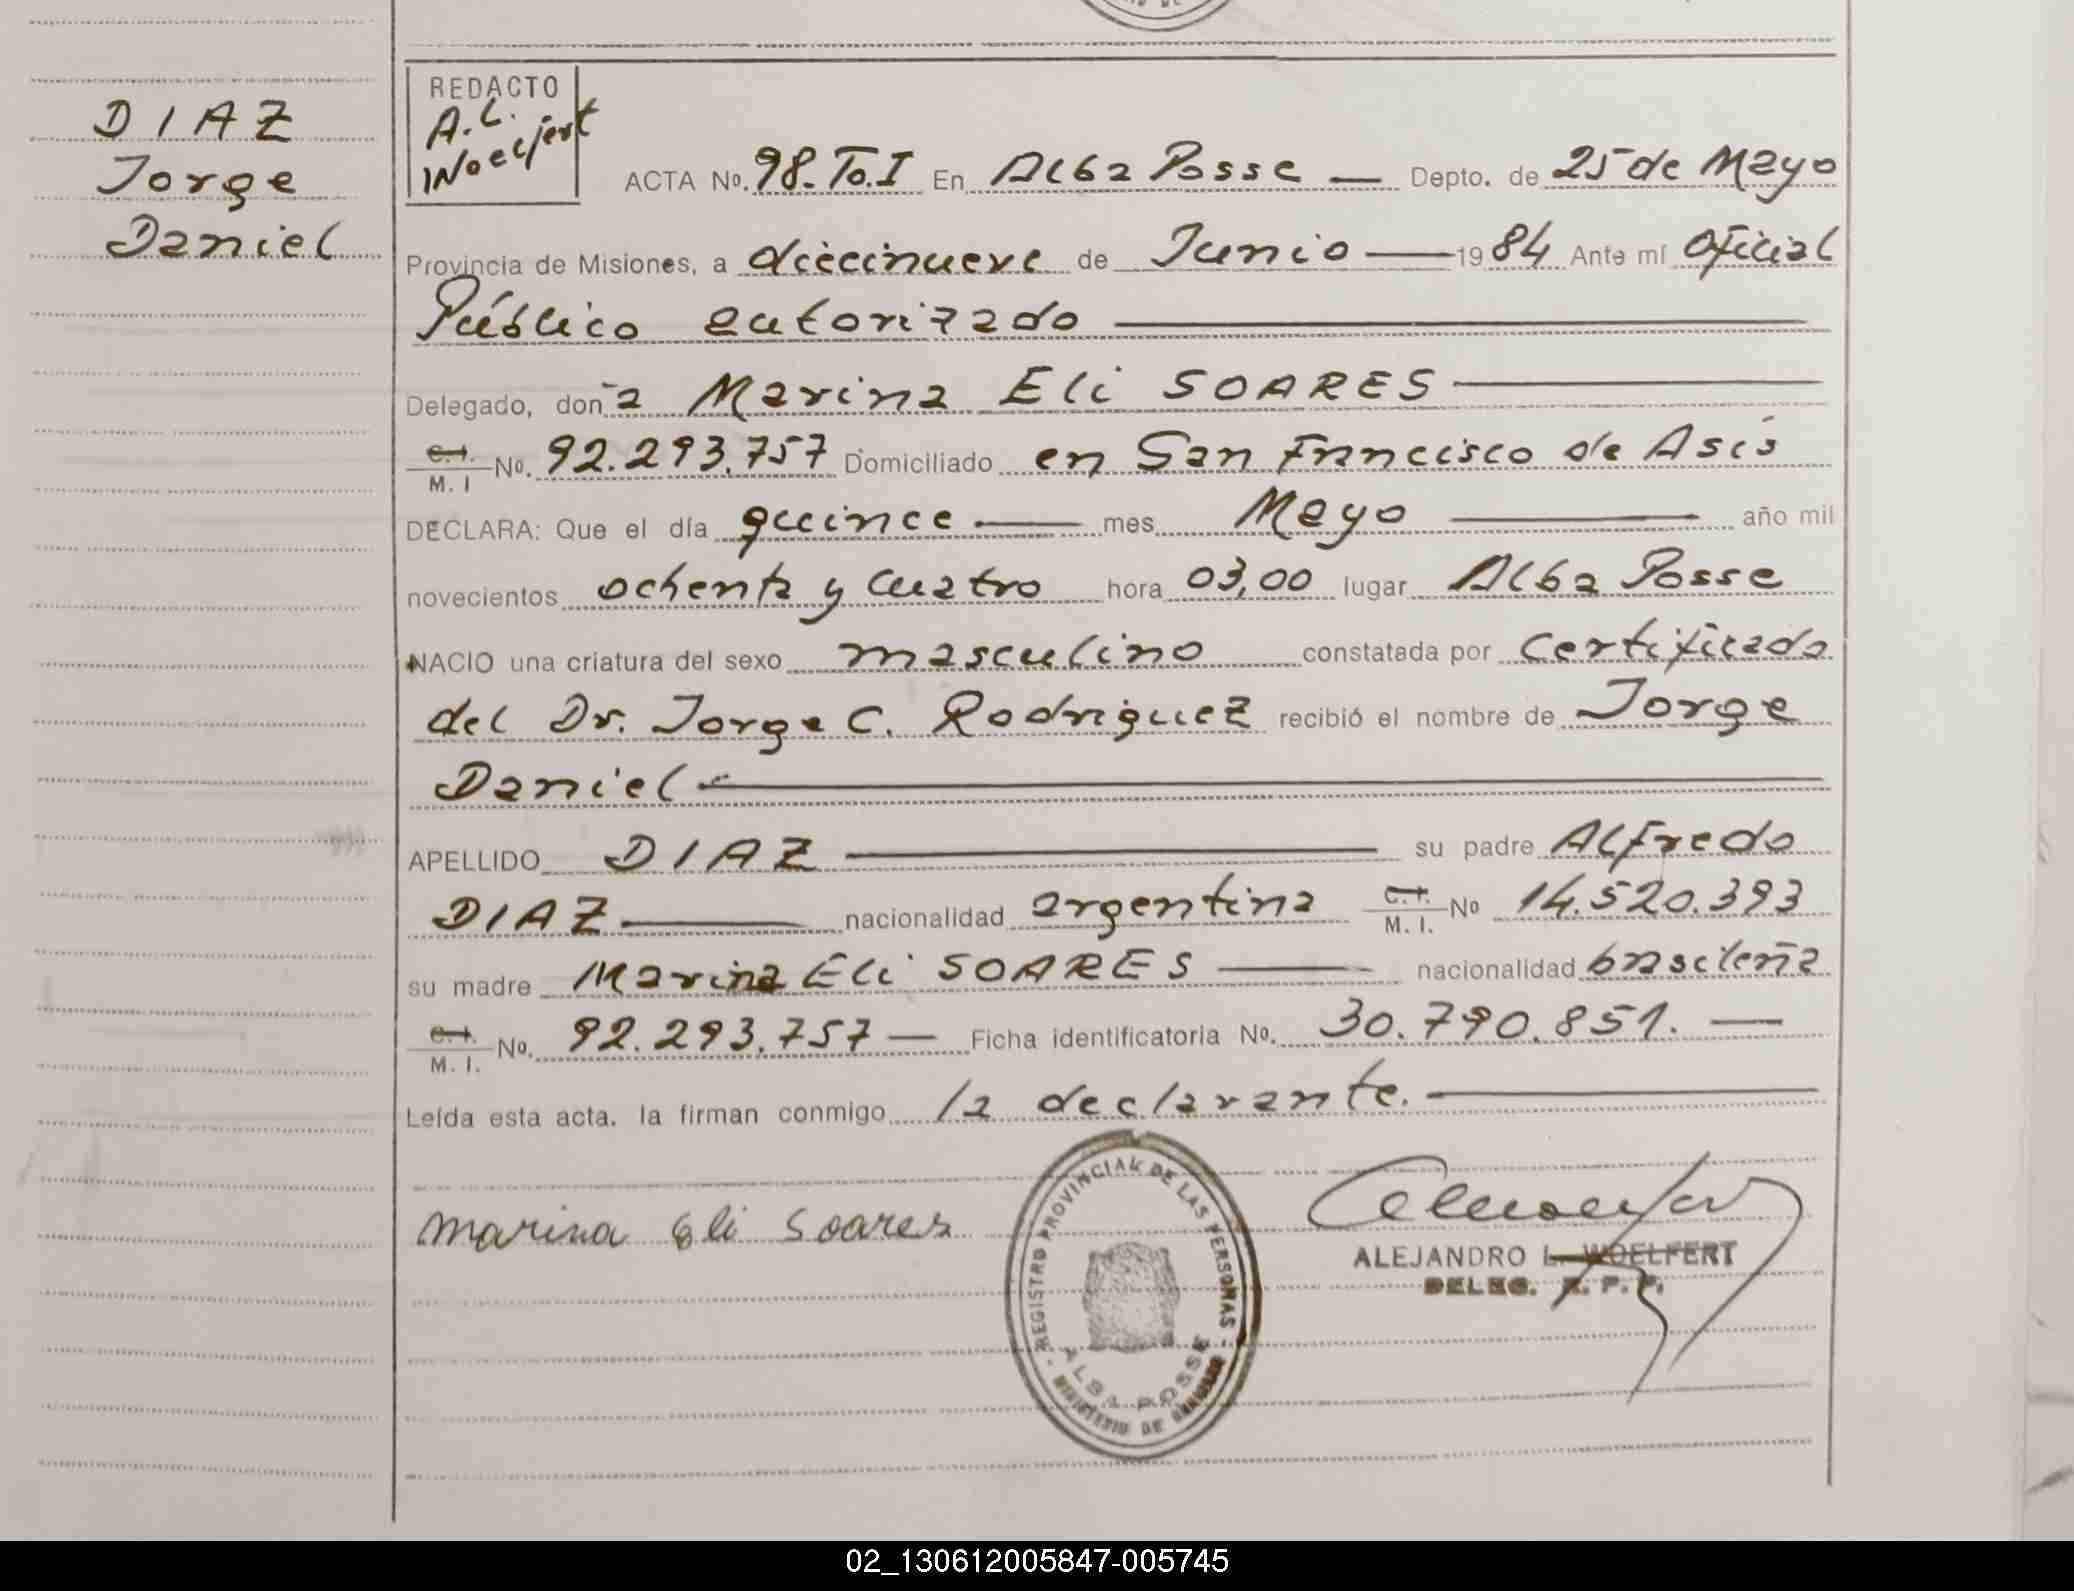 DIAZ
Jorge
Daniel
REDACTO
A.L.
Woelfert
ACTA No. 98. To. I En Alba Posse — Depto. de 25 de Mayo
Provincia de Misiones, a diecinueve de Junio — 1984 Ante mí Oficial
Público autorizado
Delegado, doña Marina Eli SOARES
C.I. / M. I No. 92.293.757 Domiciliado en San Francisco de Asís
DECLARA: Que el día quince — mes Mayo — año mil
novecientos ochenta y cuatro hora 03,00 lugar Alba Posse
NACIO una criatura del sexo masculino constatada por Certificado
del Dr. Jorge C. Rodriguez recibió el nombre de Jorge
Daniel
APELLIDO DIAZ — su padre Alfredo
DIAZ — nacionalidad argentina C.I. / M. I. No 14.520.393
su madre Marina Eli SOARES — nacionalidad brasileña
C.I. / M. I. No. 92.293.757 — Ficha identificatoria No. 30.790.851. —
Leída esta acta, la firman conmigo la declarante.
Marina Eli Soares
REGISTRO PROVINCIAL DE LAS PERSONAS
ALBA POSSE
MINISTERIO DE GOBIERNO
ALEJANDRO L. WOELFERT
DELEG. R. P. P.
02_130612005847-005745